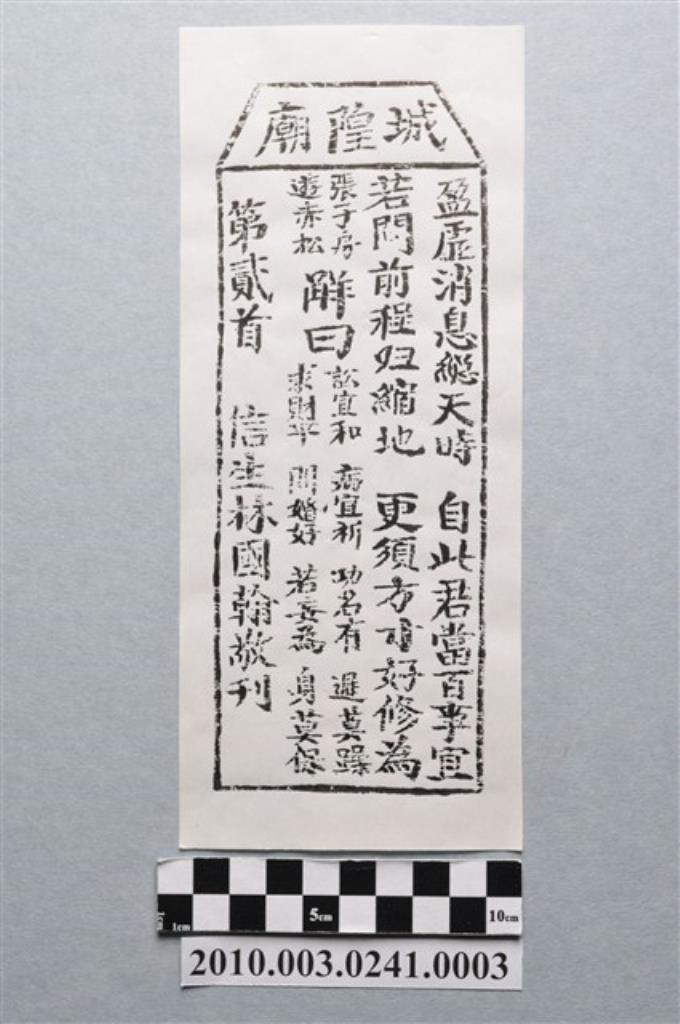 城隍廟
盈虛消息總天時　自此君當百事宜
若問前程归縮地　更須方寸好修為
張子房
遊赤松
解曰
訟宜和　病宜祈　功名有　遲莫躁
求財平　問婚好　若妄為　身莫保
第貳首　信生林國翰敬刊
1cm 5cm 10cm
2010.003.0241.0003